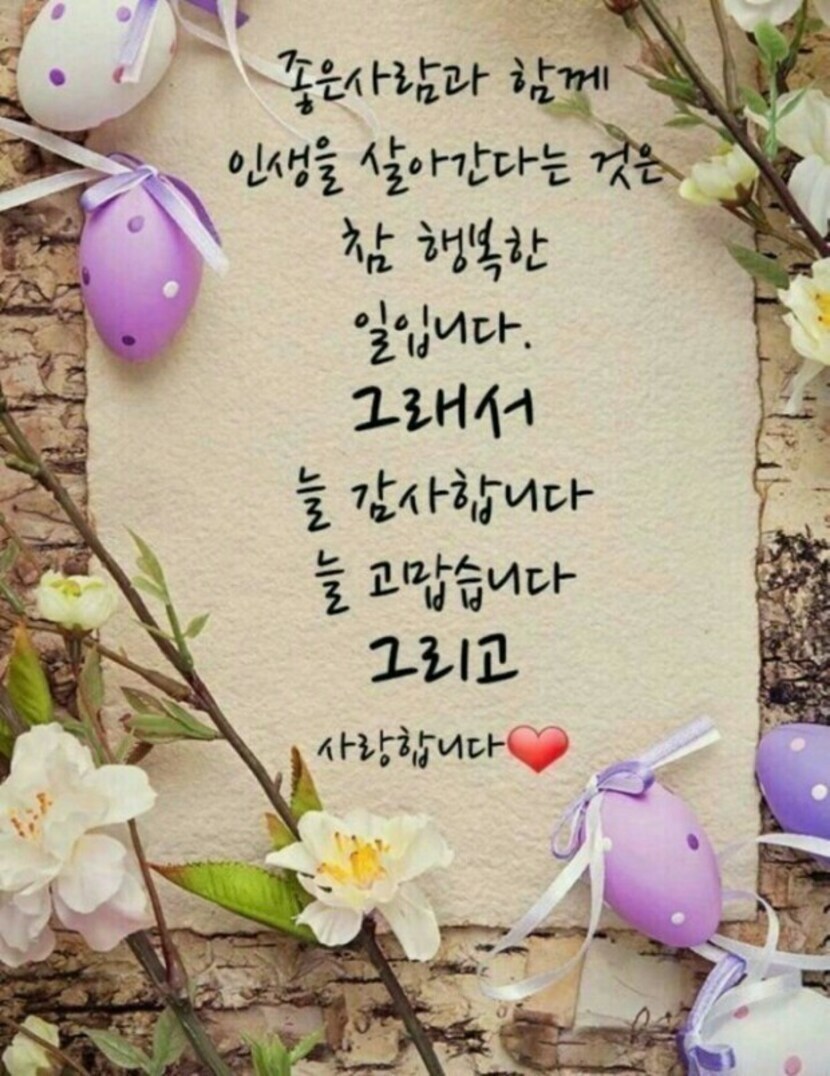 좋은사람과 함께
인생을 살아간다는 것은
참 행복한
일입니다.
그래서
늘 감사합니다
늘 고맙습니다
그리고
사랑합니다❤